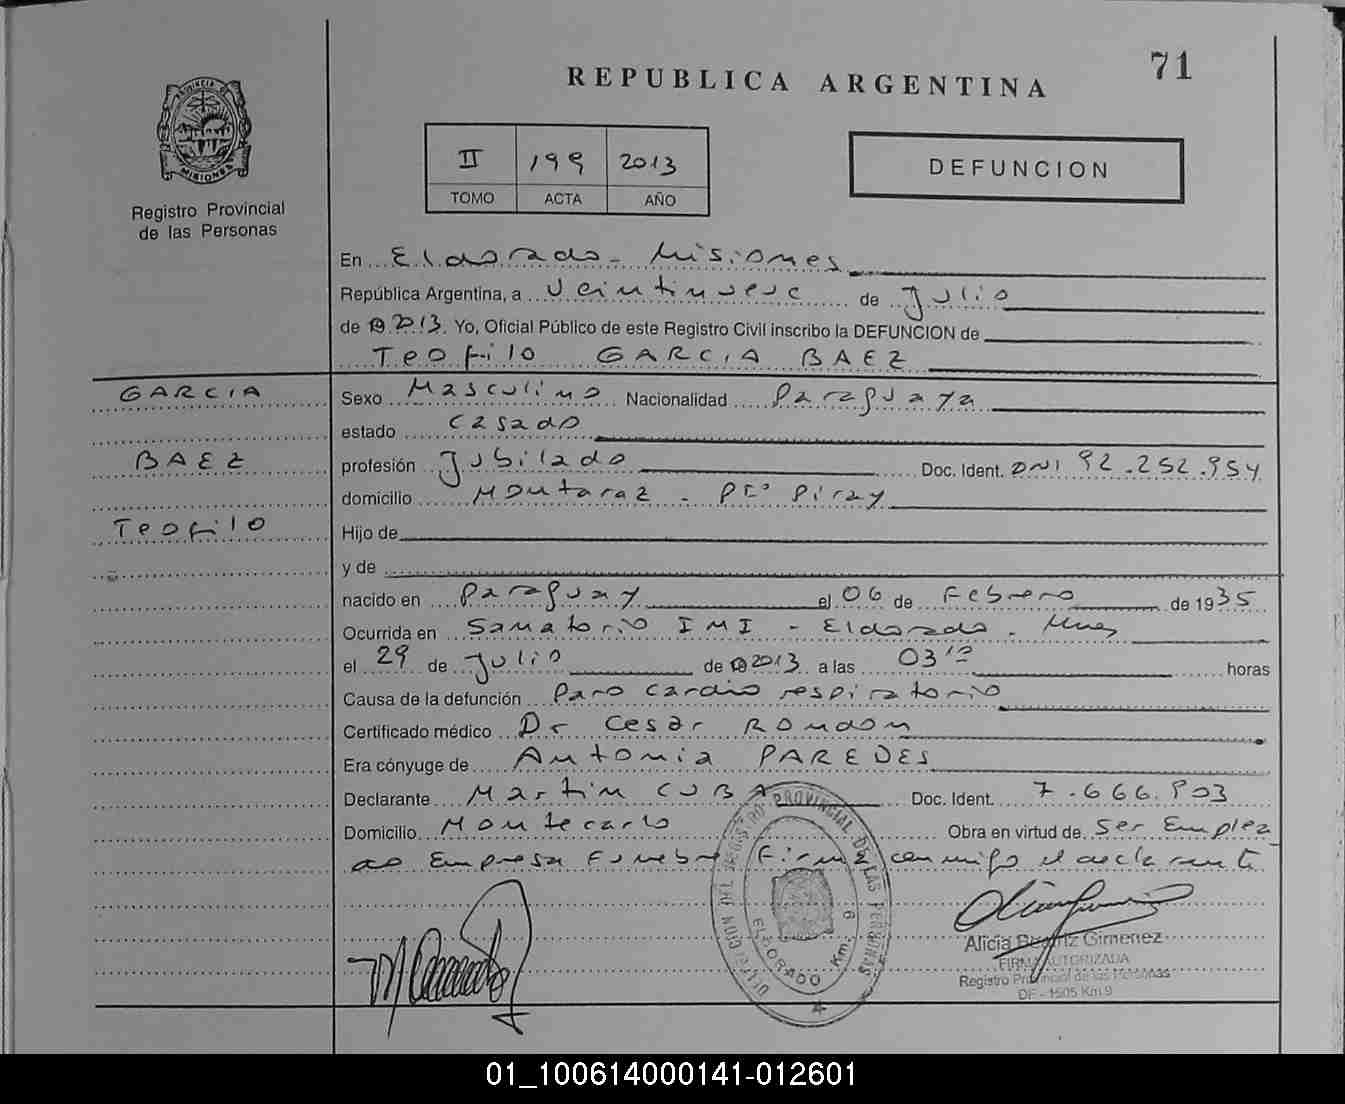 71
REPUBLICA ARGENTINA
PROVINCIA DE
MISIONES
Registro Provincial
de las Personas
II 199 2013
TOMO ACTA AÑO
DEFUNCION
En Eldorado - Misiones
República Argentina, a veintinueve de Julio
de 2013. Yo, Oficial Público de este Registro Civil inscribo la DEFUNCION de
Teofilo GARCIA BAEZ
GARCIA
BAEZ
Teofilo
Sexo Masculino Nacionalidad Paraguaya
estado Casado
profesión Jubilado Doc. Ident. DNI 92.252.954
domicilio Montaraz - Pto Piray
Hijo de
y de
nacido en Paraguay el 06 de Febrero de 1935
Ocurrida en Sanatorio IMI - Eldorado - Mnes
el 29 de Julio de 2013 a las 03 horas
Causa de la defunción Paro cardio respiratorio
Certificado médico Dr Cesar Rondon
Era cónyuge de Antonia PAREDES
Declarante Martin CUBA Doc. Ident. 7.666.903
Domicilio Montecarlo Obra en virtud de Ser Emplea
do Empresa Funebre Firma conmigo el declarante
DIRECCION DEL REGISTRO PROVINCIAL DE LAS PERSONAS
ELDORADO Km. 9
Alicia Beatriz Gimenez
FIRMA AUTORIZADA
Registro Provincial de las Personas
DF - 1505 Km 9
01_100614000141-012601